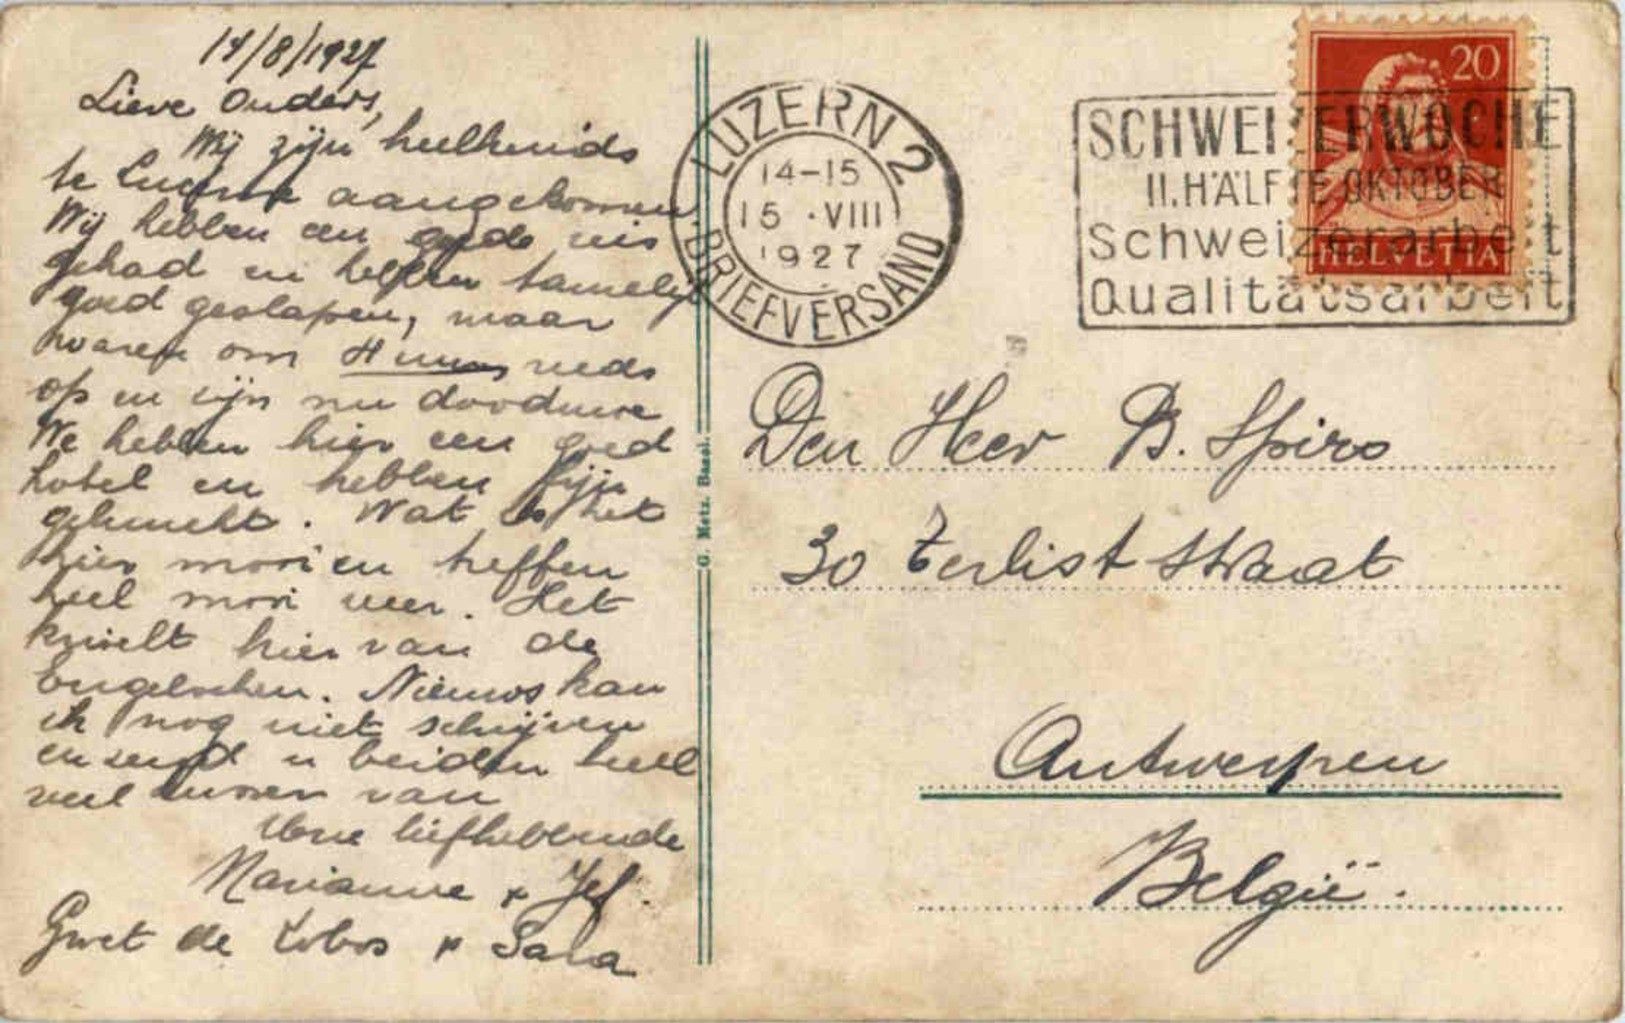 14/8/1927
Lieve Ouders,
Wij zijn heelhuids
te Lucerne aangekomen
Wij hebben een goede reis
gehad en hebben tamelijk
goed geslapen, maar
waren om 4 uur reeds
op en zijn nu doodmoe
We hebben hier een goed
hotel en hebben fijn
geluncht. Wat is het
hier mooi en treffen
heel mooi weer. Het
krioelt hier van de
Engelschen. Nieuws kan
ik nog niet schrijven
en zend u beiden heel
veel kussen van
Uwe liefhebbende
Marianne & Jef.
Groet de Lobos & Sara
G. Metz. Basel.
LUZERN 2
14-15
15.VIII
1927
BRIEFVERSAND
SCHWEIZERWOCHE
II. HÄLFTE OKTOBER
Schweizerarbeit
Qualitätsarbeit
20
HELVETIA
Den Heer B. Spiro
30 Terlist Straat
Antwerpen
België.